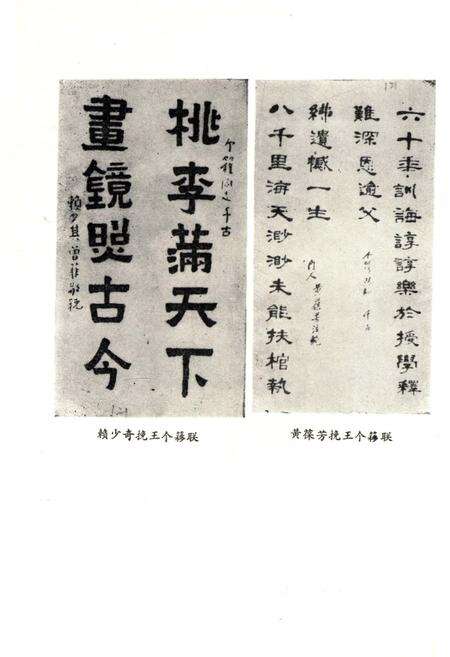 桃李滿天下
个簃同志千古
畫鏡照古今
賴少其曾菲敬挽
賴少奇挽王个簃联
六十年訓海諄諄樂於授學釋
難深恩逾父
个簃師 千古
八千里海天渺渺未能扶棺執
紼遺憾一生
門人 黄葆芳泣輓
黄葆芳挽王个簃联